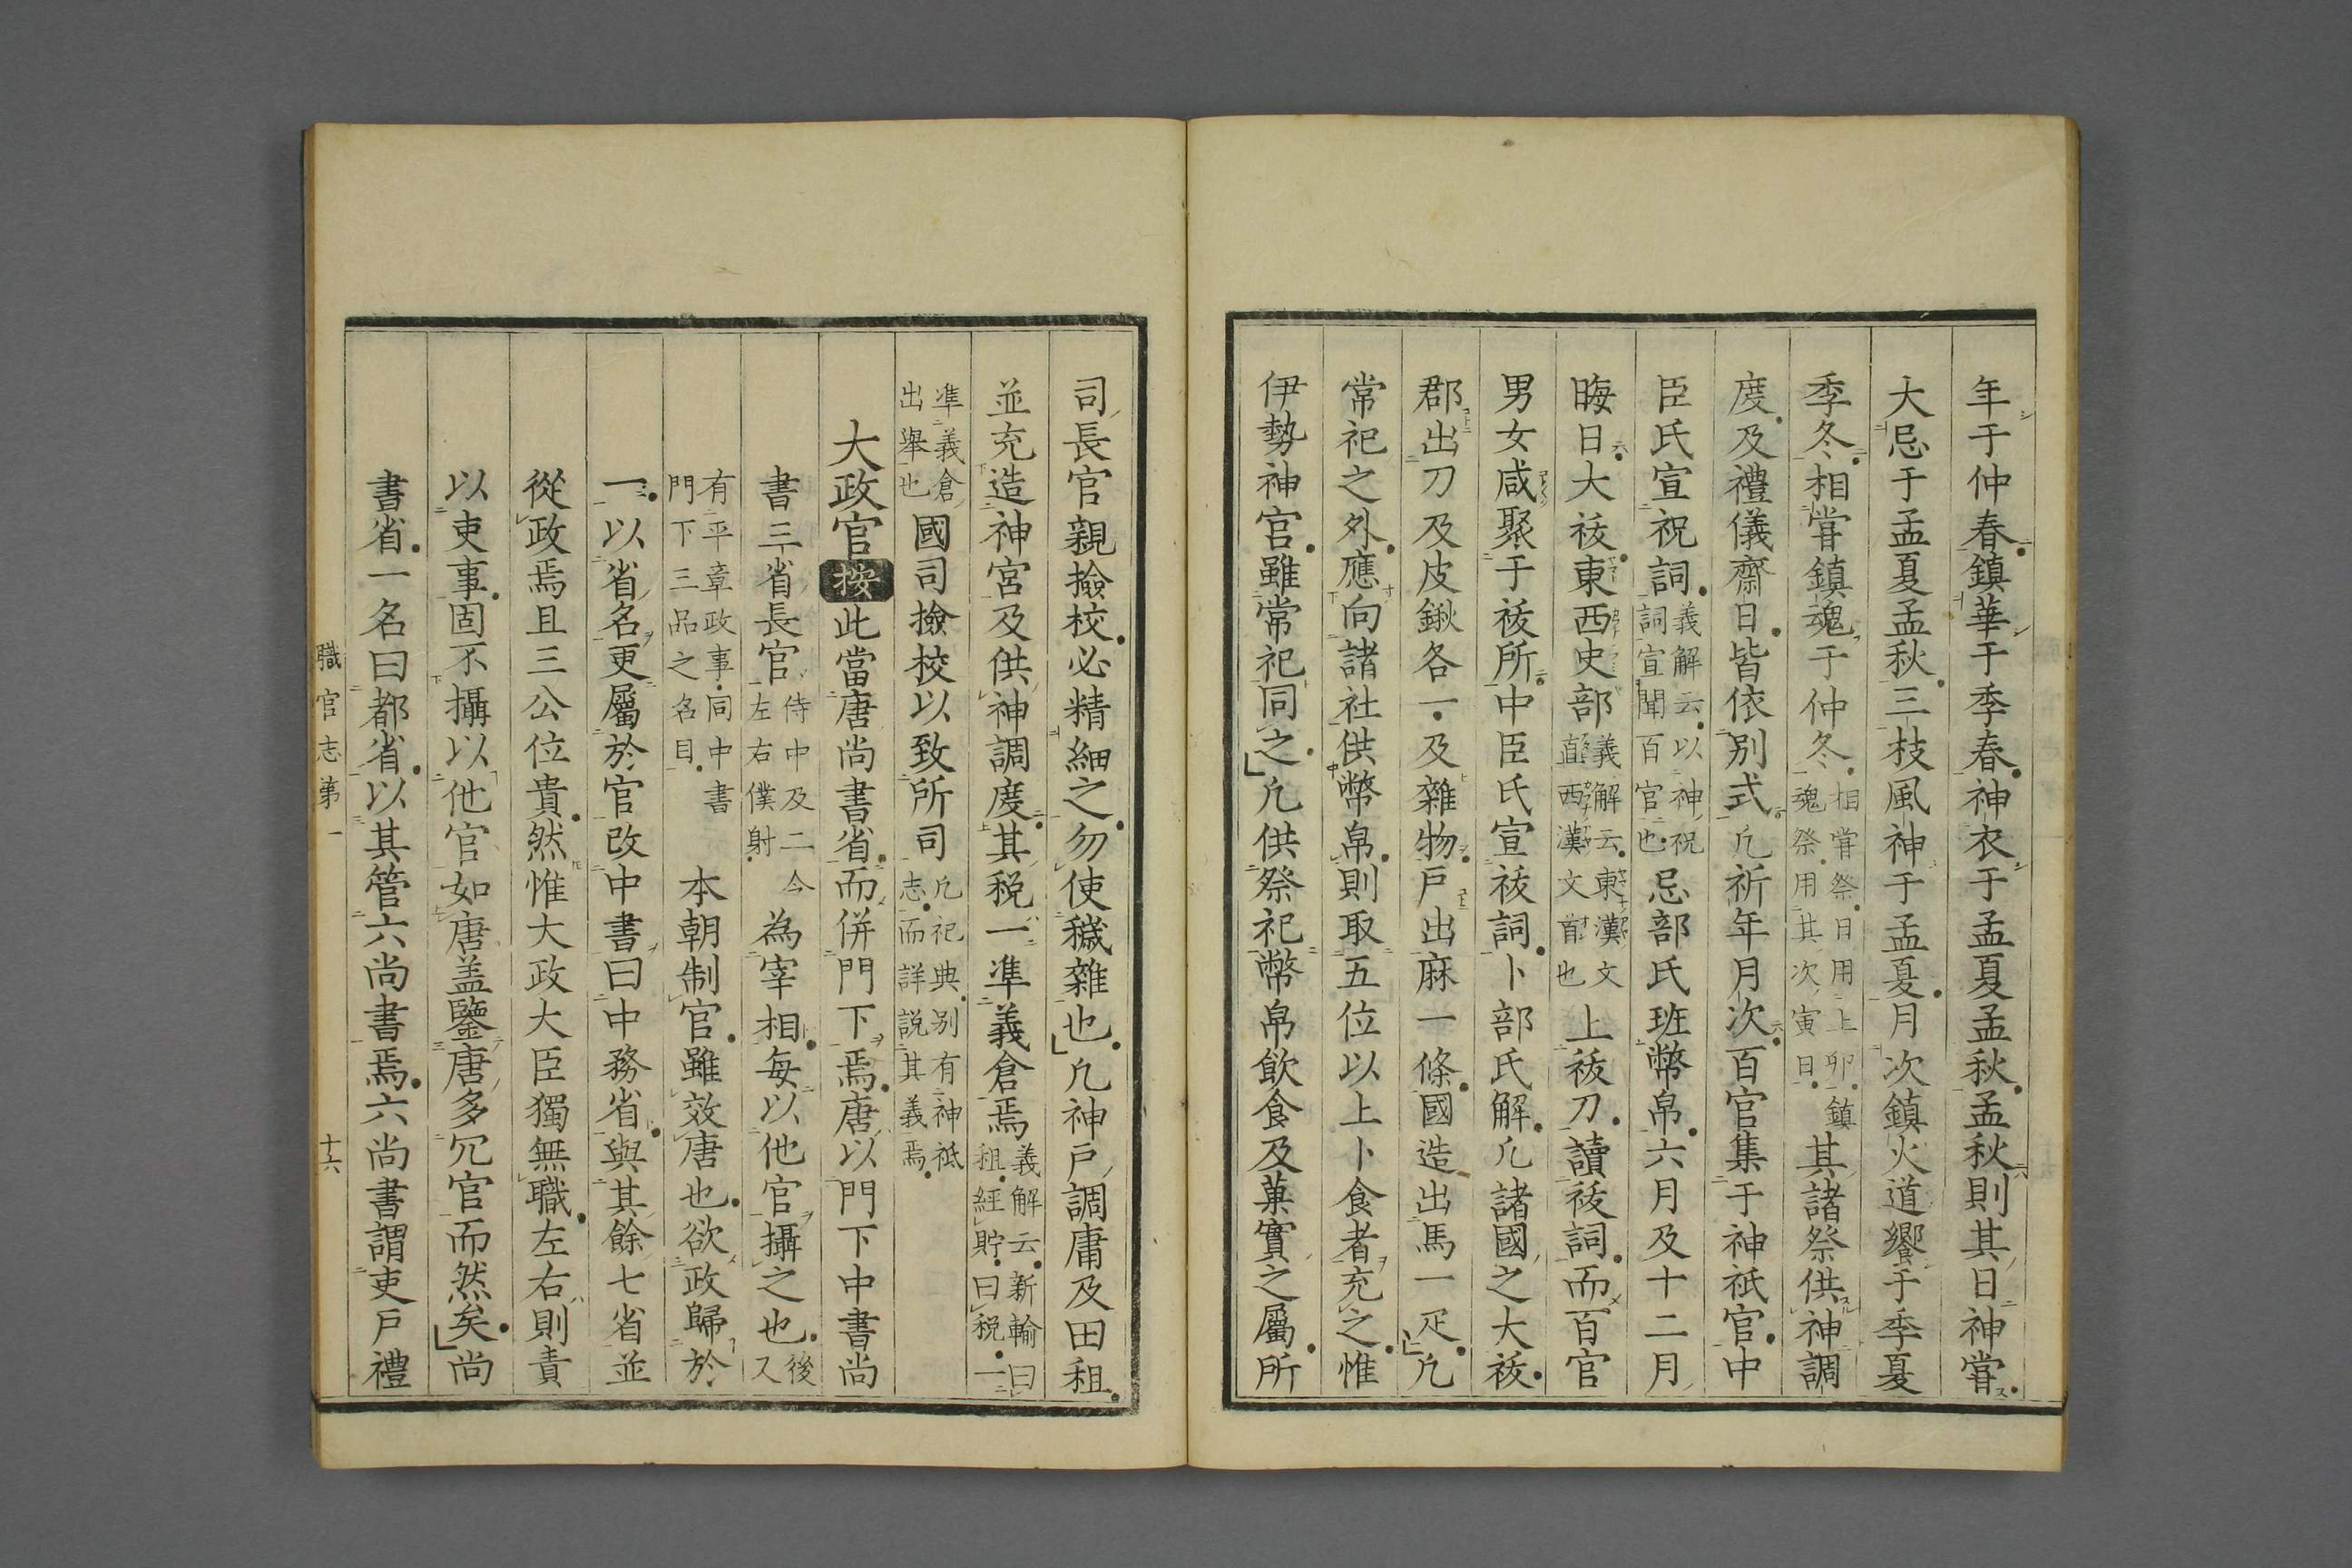 年于仲春鎮華于季春神衣于孟夏孟秋孟秋則其日神甞
大忌于孟夏孟秋三枝風神于孟夏月次鎮火道饗于季夏
季冬相甞鎮魂于仲冬相甞祭日用上卯鎮魂祭用其次寅日其諸祭供神調
度及禮儀齋日皆依别式凢祈年月次百官集于神祇官中
臣氏宣祝詞義解云以神祝詞宣聞百官也忌部氏班幣帛六月及十二月
晦日大祓東西史部義解云東漢文直西漢文首也上祓刀讀祓詞而百官
男女咸聚于祓所中臣氏宣祓詞卜部氏解凢諸國之大祓
郡出刀及皮鍬各一及雜物戸出麻一條國造出馬一疋凢
常祀之外應向諸社供幣帛則取五位以上卜食者充之惟
伊勢神宮雖常祀同之凢供祭祀幣帛飲食及菓實之屬所
司長官親撿校必精細之勿使穢雜也凢神戸調庸及田租
並充造神宮及供神調度其税一準義倉焉義解云新輸曰租經貯曰税一
準義倉出舉也國司撿校以致所司凢祀典别有神祇志而詳説其義焉
大政官按此當唐尚書省而併門下焉唐以門下中書尚
書三省長官侍中及二左右僕射今為宰相每以他官攝之也後又
有平章政事同中書門下三品之名目本朝制官雖效唐也欲政歸於
一以省名更屬於官改中書曰中務省與其餘七省並
從政焉且三公位貴然惟大政大臣獨無職左右則責
以吏事固不攝以他官如唐盖鑒唐多冗官而然矣尚
書省一名曰都省以其管六尚書焉六尚書謂吏戸禮
職官志第一
十六